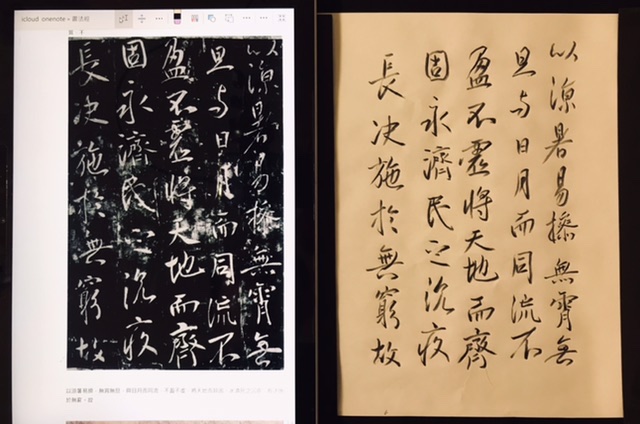 icloud onenote » 書法經
以涼暑易操無霄無
旦与日月而同流不
盈不虛將天地而齊
固永濟民之沉疾
長决施於無窮故
以涼暑易操，無霄無旦，與日月而同流，不盈不虛，將天地而齊固，
於無窮，故
以涼暑易操無霄無
旦与日月而同流不
盈不虛將天地而齊
固永濟民之沉疾
長决施於無窮故